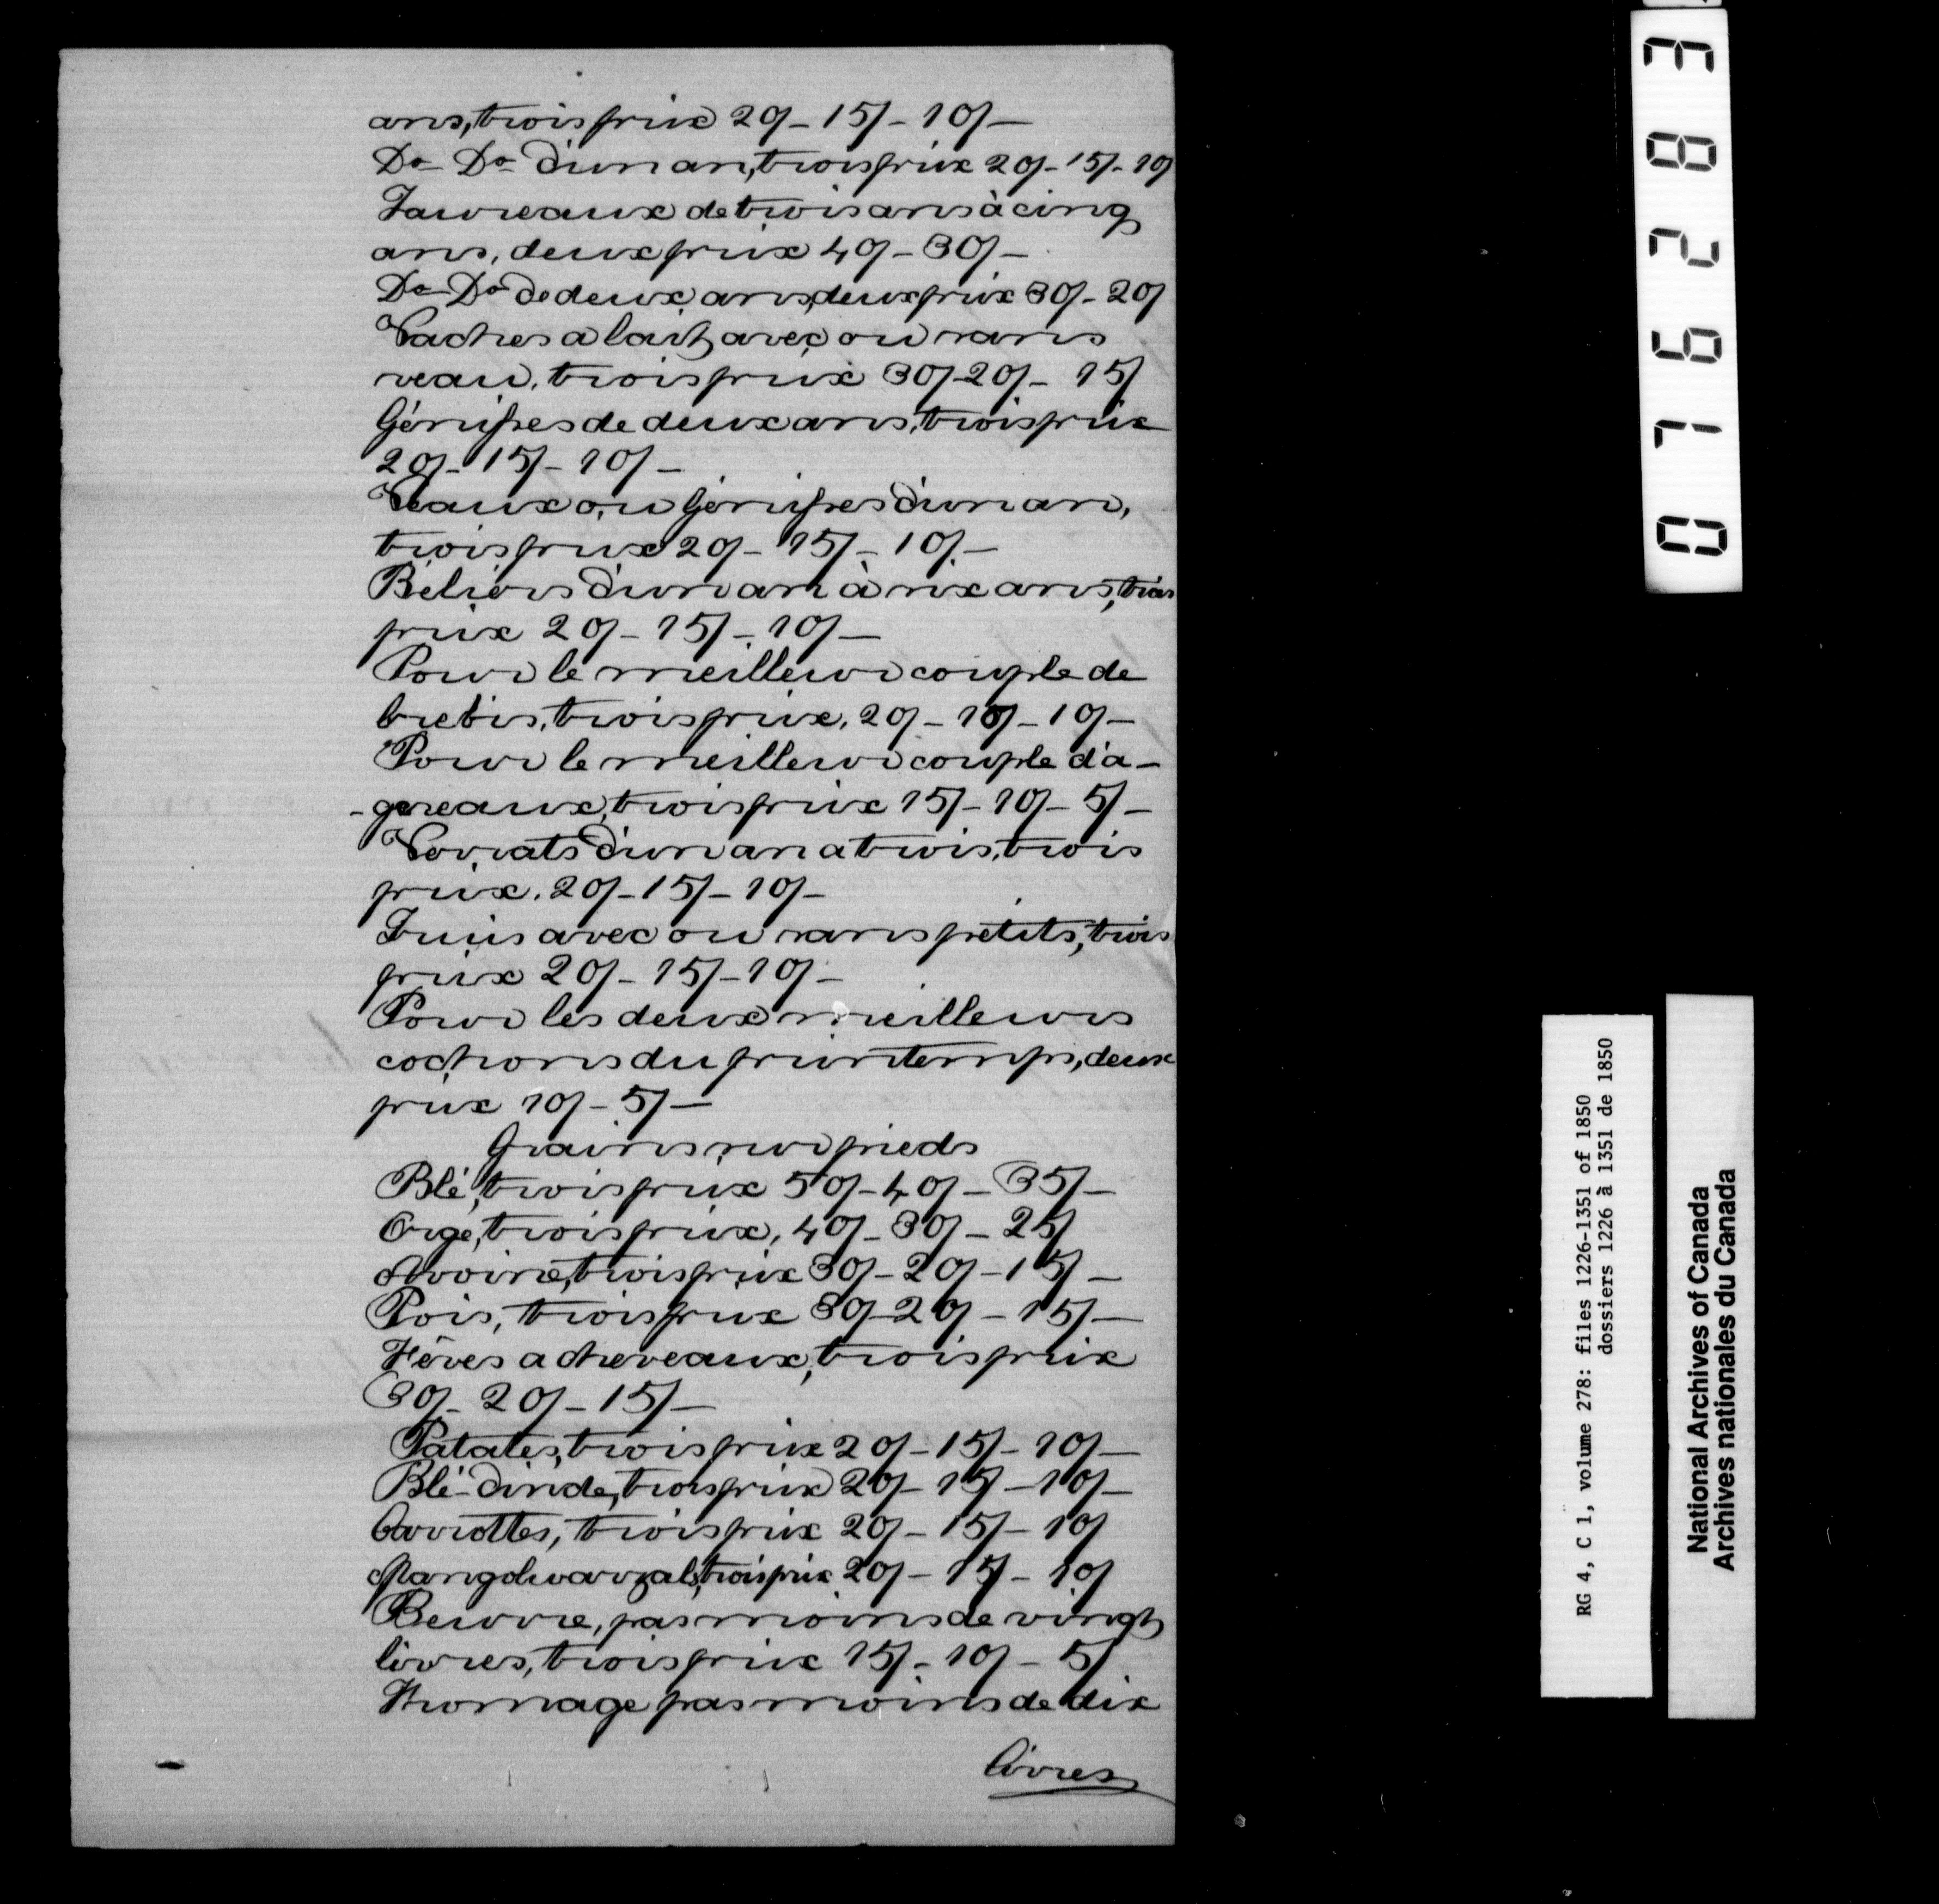 ans, trois prix 20/- 15/- 10/-
Do Do d'un an, trois prix 20/- 15/- 10/
Taureaux de trois ans à cinq
ans, deux prix 40/- 30/-
Do Do de deux ans, deux prix 30/- 20/
Vaches a lait, avec ou sans
veau, trois prix 30/- 20/- 15/
Génisses de deux ans, trois prix
20/- 15/- 10/-
Veaux ou Génisses d'un an,
trois prix 20/- 15/- 10/-
Béliers d'un an à six ans, trois
prix 20/- 15/- 10/-
Pour le meilleur couple de
brebis, trois prix, 20/- 10/- 10/-
Pour le meilleur couple d'a-
-gneaux, trois prix 15/- 10/- 5/-
Verrats d'un an a trois, trois
prix. 20/- 15/- 10/-
Truies avec ou sans petits, trois
prix 20/- 15/- 10/-
Pour les deux meilleurs
cochons du printemps, deux
prix 10/- 5/-
Grains sur pieds
Blé, trois prix 50/- 40/- 35/-
Orge, trois prix, 40/- 30/- 25/
Avoine, trois prix 30/- 20/- 15/-
Pois, trois prix 30/- 20/- 15/-
Fêves a chevaux, trois prix
30/- 20/- 15/-
Patates, trois prix 20/- 15/- 10/-
Blé-d'inde, trois prix 20/- 15/- 10/-
Carrottes, trois prix 20/- 15/- 10/
Mangolwarzals, trois prix 20/- 15/- 10/
Beurre, pas moins de vingt
livres, trois prix 15/- 10/- 5/
Fromage pas moins de dix
livres
076283
RG 4, C 1, volume 278: files 1226-1351 of 1850
dossiers 1226 à 1351 de 1850
National Archives of Canada
Archives nationales du Canada